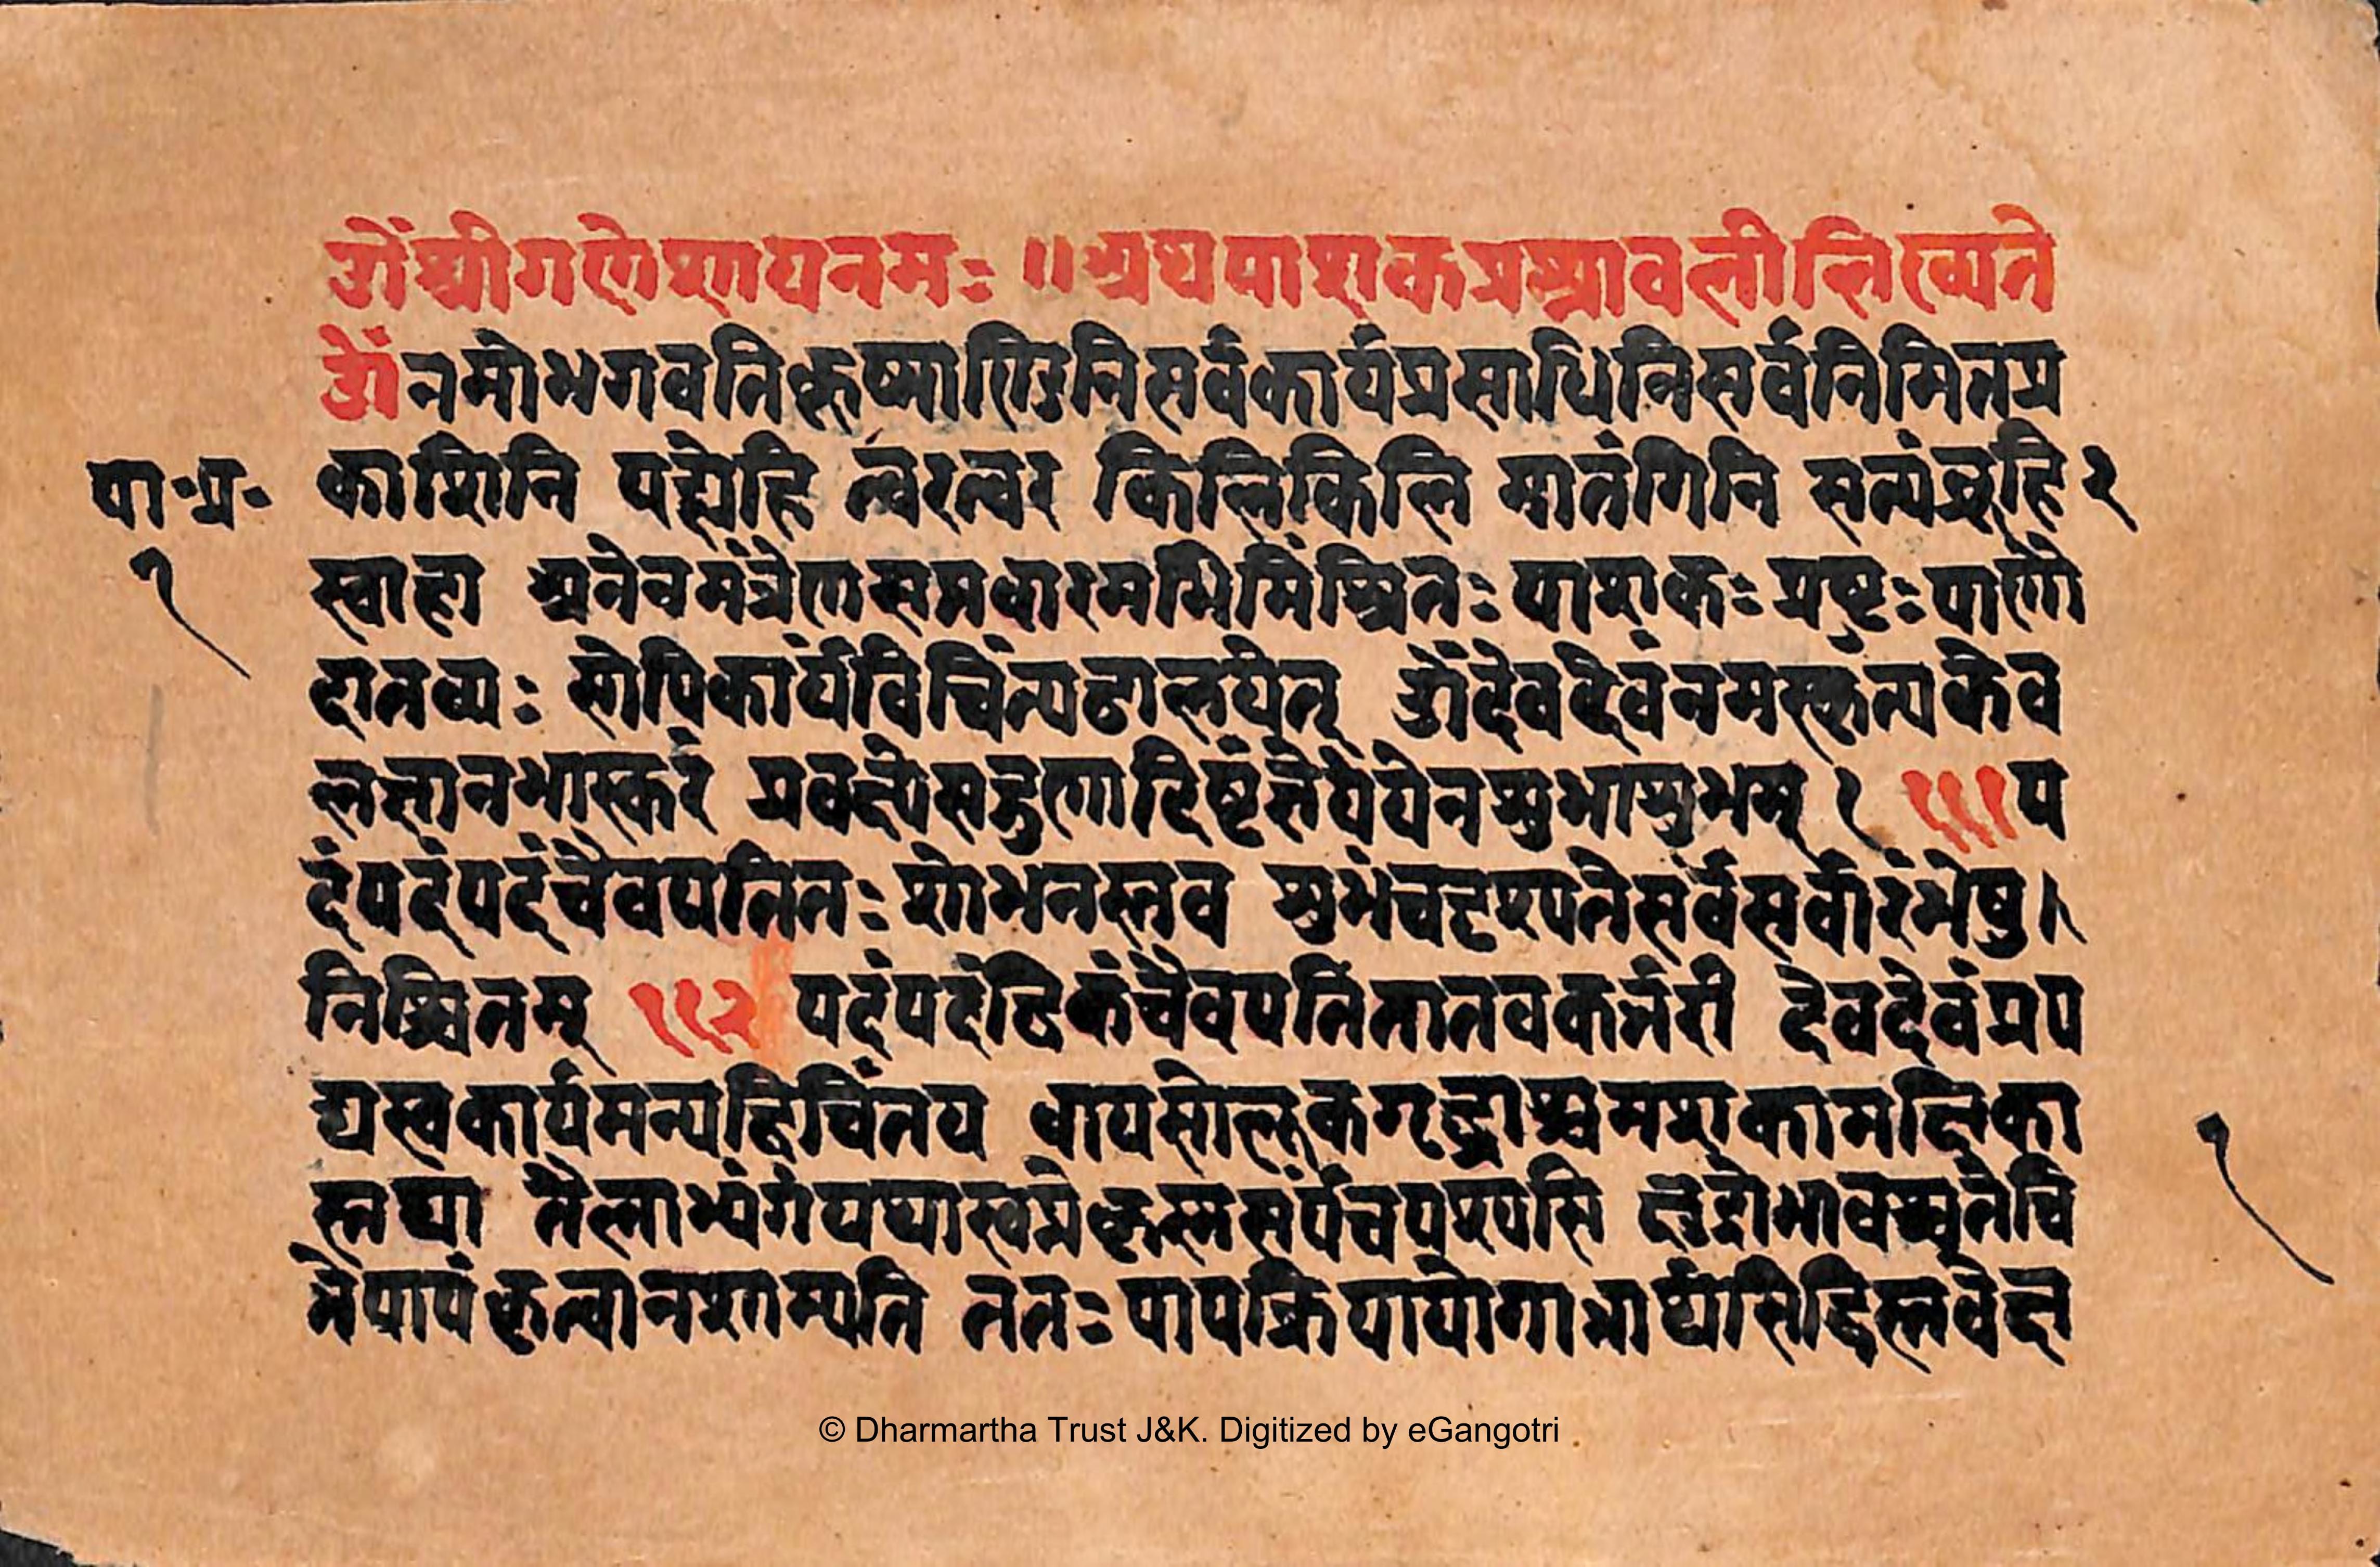 ओं श्रीगणेशायनमः ॥ अथपाशकप्रश्नावलीलिख्यते
ओं नमोभगवतिकूष्माण्डिनिसर्वकार्यप्रसाधिनिसर्वनिमित्तप्र
पा॰प्र॰ काशिनि एह्येहि त्वरत्वर किलिकिलि मातंगिनि सत्यंब्रूहि २
१
स्वाहा अनेनमंत्रेणसप्तवारमभिमंत्रितः पाशकः प्रष्टुः पाणौ
दातव्यः सोपिकार्यंविचिंत्यढालयेत् ओं देवदेवंनमस्कृत्यकेव
लज्ञानभास्करं प्रवक्ष्येसद्गुणादिष्टंज्ञेयंयेनशुभाशुभम् १ १११ प
दंपदंपदंचैवपतितः शोभनस्तव शुभंचदृश्यतेसर्वेसर्वारंभेषु।
निश्चितम् ११२ पदंपदंद्विकंचैवपतितानवकर्त्तरी देवदेवंप्रप
द्यस्वकार्यमन्यद्विचिंतय वायसोलूकगृद्ध्राश्चमशकामक्षिका
१
स्तथा तैलाभ्यंगंयथास्वप्नेकृष्णसर्पंचपश्यसि क्षुद्रोभावश्चतेचि
त्तेपापंकृत्वानशाम्यति ततः पापक्रियायोगान्नार्थसिद्धिस्तवेक्ष
© Dharmartha Trust J&K. Digitized by eGangotri